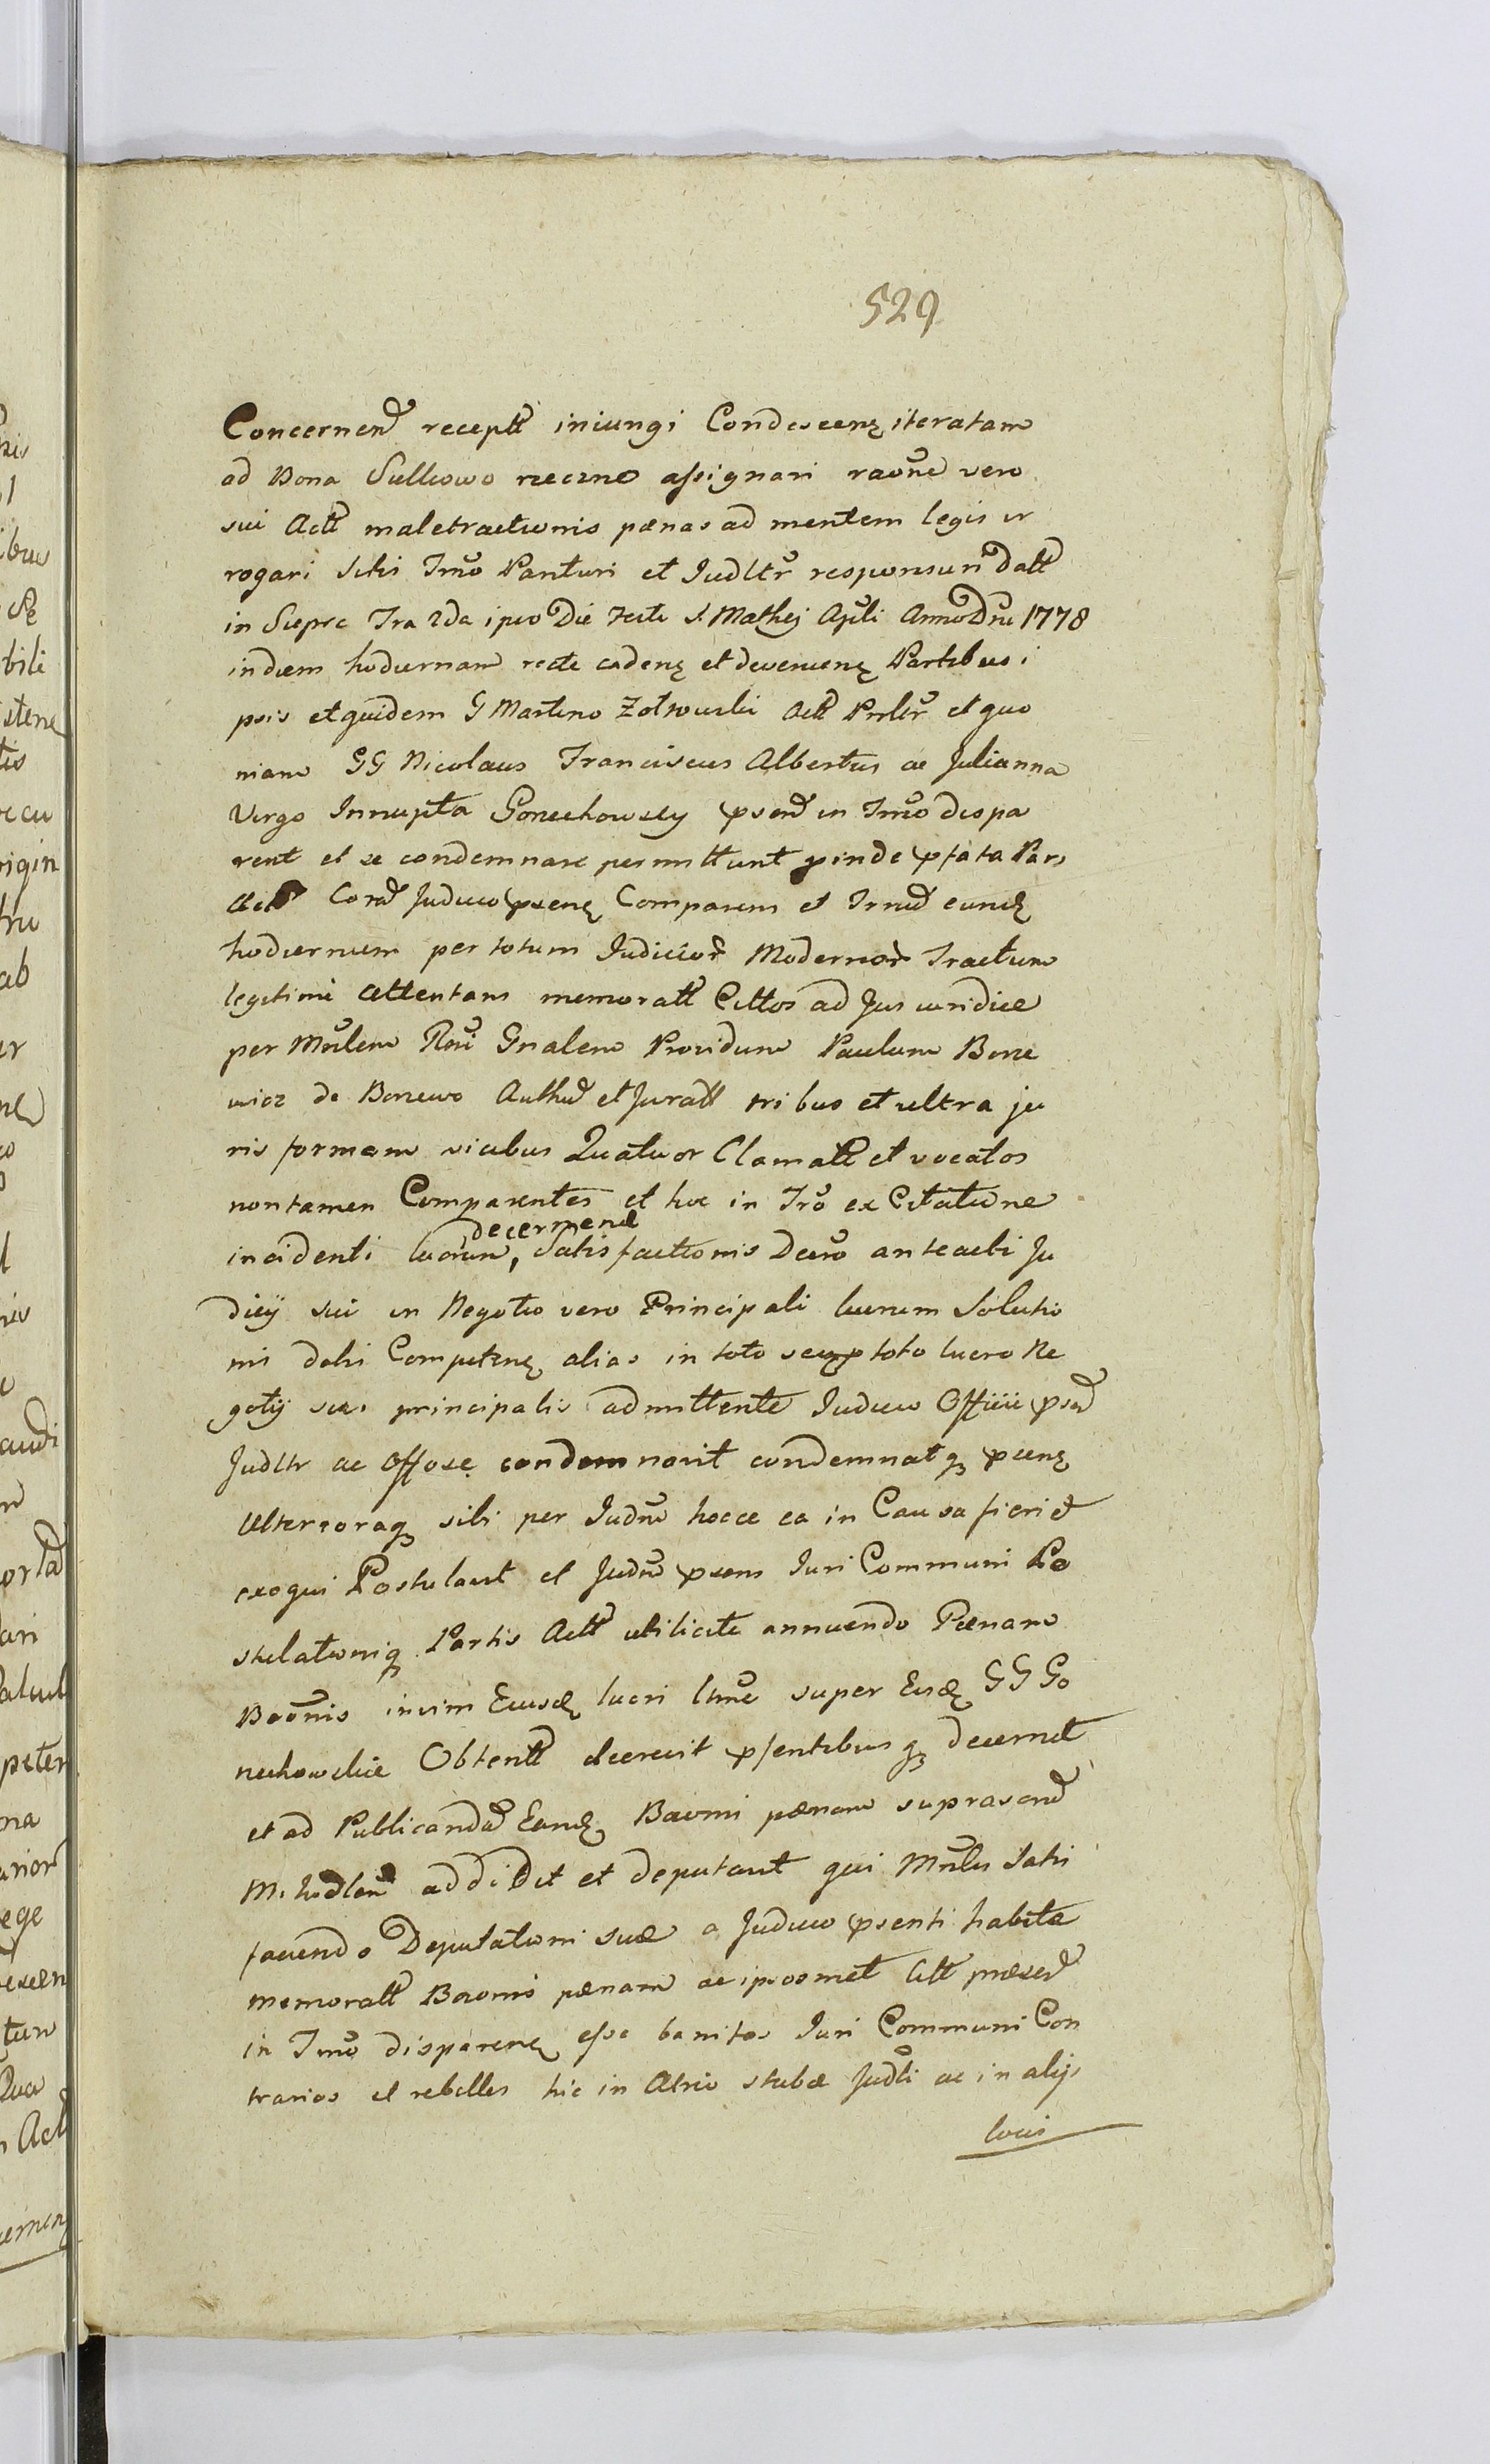 529
Concernend recept iniungi Condescens iteratam
ad Bona Sulkowo rzeczne assignari raone vero
sui Act maletractionis pœnas ad mentem legis ir
rogari Sitis Trmo Parituri et Judltr responsuri datt
in Sieprc Fra 2da ipso Die Festi S. Mathej Apli Anno Dni 1778
in diem hodiernam recte cadens et deveniens Partibus i
psis et quidem G Martino Zołtowski Act Prsltr et quo
niam GG Nicolaus Franciscus Albertus ac Julianna
Virgo Innupta Goneckowscy psend in Trmo dispa
rent et se condemnare permittunt pinde pfata Pars
Act Corā Judicio psens Comparens et Trnū eund
hodiernum per totum Judicior Modernor Tractum
legitime attentans memorat Cittos ad Jus iuridice
per Mnlem Rni Gnalem Providum Paulum Bonie
wicz de Boniewo Authen et Jurat tribus et ultra ju
ris formam vicibus Quatuor Clamatt et vocatos
non tamen Comparentes et hoc in Tro ex Citatione
decernenæ
incidenti lucrum, Satisfactionis Decro anteacti Ju
dicij sui in Negotio vero Principali lucrum Solutio
ni debi Competens alias in toto seu p toto lucro Ne
gotij sui principalis admittente Judicio Officii psend
Judltr ac Offose condemnavit condemnatq psens
Ulterioraq sibi per Judm hocce ea in Causa fieri et
exequi Postulavit et Judm psens Juri Communi Po
stulationiq Partis Act utilicite annuendo Pœnam
Baonis in vim Eiusd lucri Ltme super Eisd GG Go
neckowskie Obtent decrevit psentibusq decernit
et ad Publicandā Eand Baonni pœnam suprascrid
Mi hodlem addidit et deputavit qui Mnlis Satis
faciendo Deputationi suæ a Judicio psenti habitæ
memorat Baonis pœnam ac ipsosmet Citt præsed
in Trmo disparens esse banitos Juri Communi Con
trarios et rebelles hic in Atrio stubæ Judli ac in alijs
locis